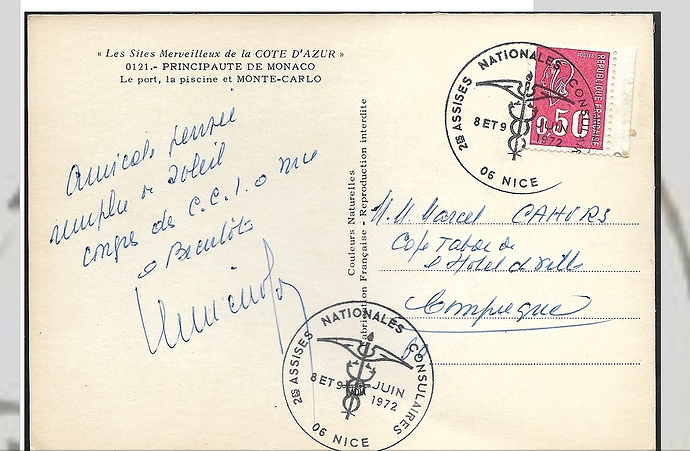 « Les Sites Merveilleux de la COTE D'AZUR »
0121.- PRINCIPAUTE DE MONACO
Le port, la piscine et MONTE-CARLO
Amicale pensée
remplie de Soleil
congrès des C.C.I. à Nice
à Bientôt
Couleurs Naturelles
Fabrication Française - Reproduction interdite
2es ASSISES NATIONALES CONSULAIRES
8 ET 9 JUIN
1972
06 NICE
POSTES
REPUBLIQUE FRANÇAISE
0,50
M. M. Marcel CAHURS
Café Tabac de
l'Hotel de Ville
Compiègne
2es ASSISES NATIONALES CONSULAIRES
8 ET 9 JUIN
1972
06 NICE